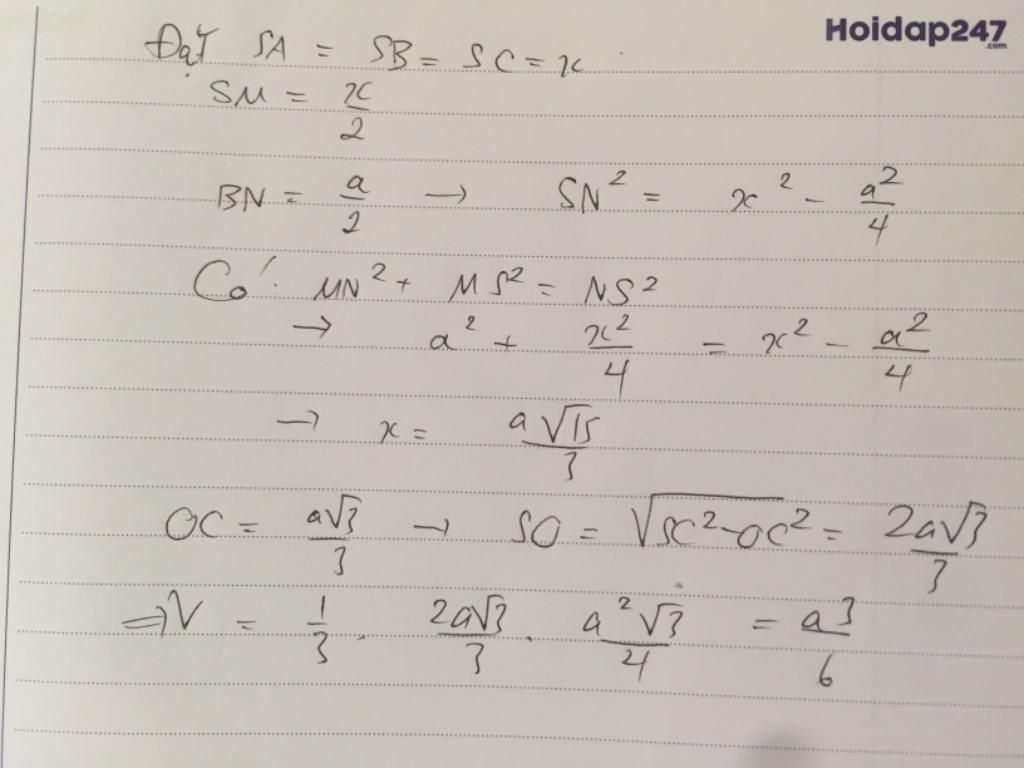 Hoidap247
.com
Đặt SA = SB = SC = x
SM = x/2
BN = a/2 → SN² = x² - a²/4
Có: MN² + MS² = NS²
→ a² + x²/4 = x² - a²/4
→ x = a√15/3
OC = a√3/3 → SO = √(SC²-OC²) = 2a√3/3
⇒ V = 1/3 . 2a√3/3 . a²√3/4 = a³/6